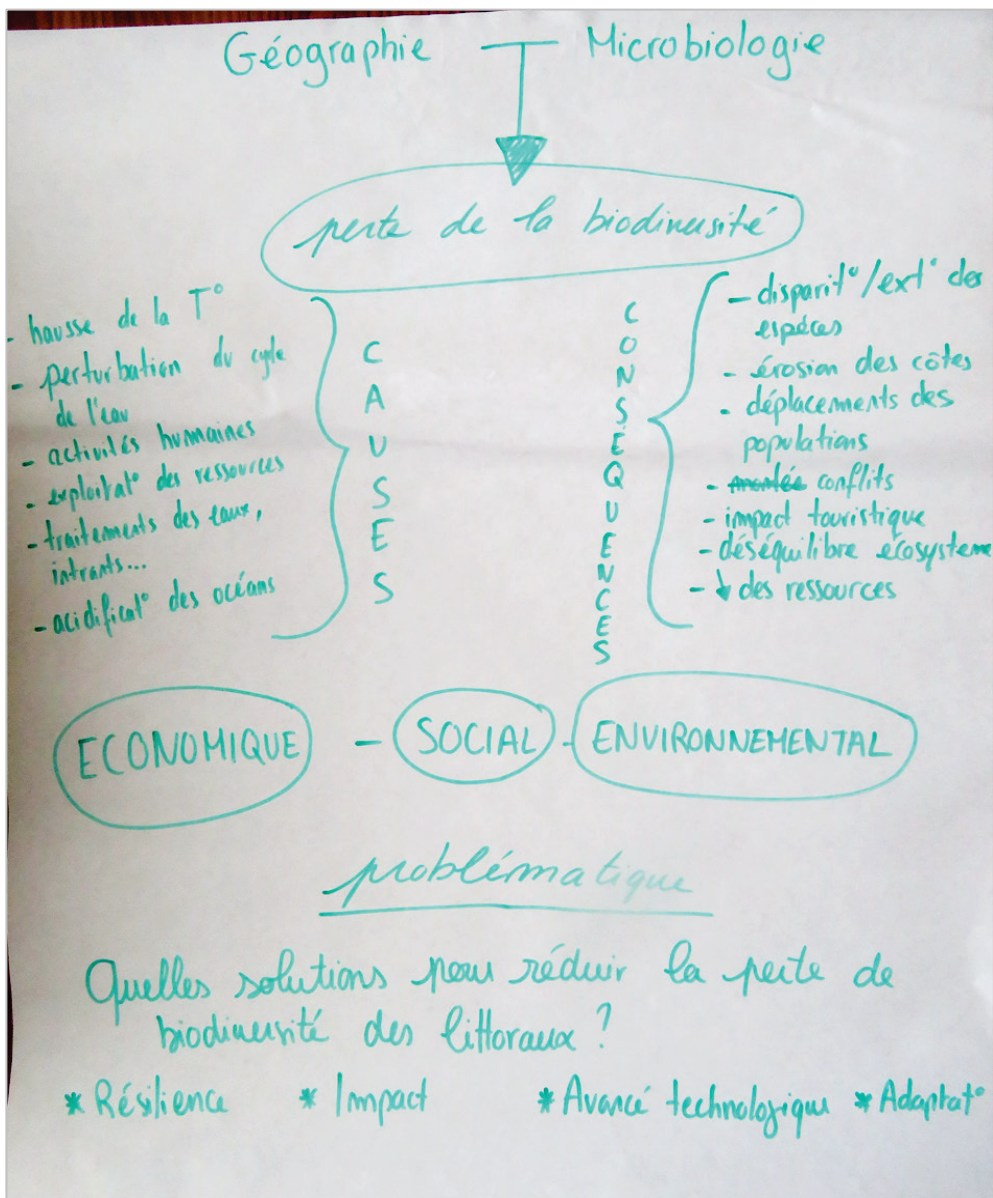 Géographie Microbiologie
perte de la biodiversité
- hausse de la T°
- perturbation du cycle
de l'eau
- activités humaines
- exploitat° des ressources
- traitements des eaux,
intrants...
- acidificat° des océans
CAUSES
CONSEQUENCES
- disparit°/ext° des
espéces
- érosion des côtes
- déplacements des
populations
- montée conflits
- impact touristique
- déséquilibre écosysteme
- ↓ des ressources
ECONOMIQUE - SOCIAL - ENVIRONNEMENTAL
problématique
Quelles solutions pour réduir la perte de
biodiversité des littoraux ?
* Résilience * Impact * Avancé technologique * Adaptat°